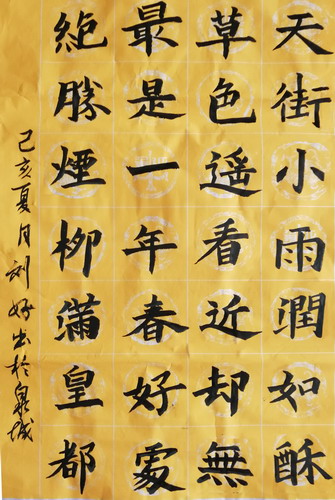 天街小雨潤如酥
草色遥看近却無
最是一年春好處
絶勝煙柳滿皇都
己亥夏月刘书於泉城